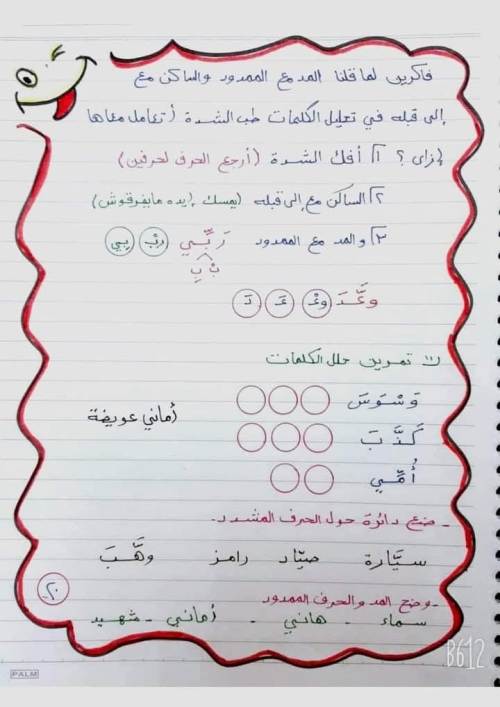 فاكرين لما قلنا المد مع الممدود والساكن مع
إلى قبله في تحليل الكلمات طب الشدة أتعامل معاها
إزاى ؟ ١] أفك الشدة (أرجع الحرف لحرفين)
٢] الساكن مع إلى قبله (يمسك إيده مابيفرقوش)
٣] والمد مع الممدود رَبِّي رَبْ بِي
بْ بِ
وعَّدَ وعْ عَ دَ
تمرين حلل الكلمات
وَسْوَسَ
أماني عويضة
كَذَّبَ
أُمِّي
- ضع دائرة حول الحرف المشدد.
سيَّارة صيَّاد رامز وهَّبَ
- وضح المد والحرف الممدود
سماء - هاني - أماني - شهيد
٢٠
B612
PALM